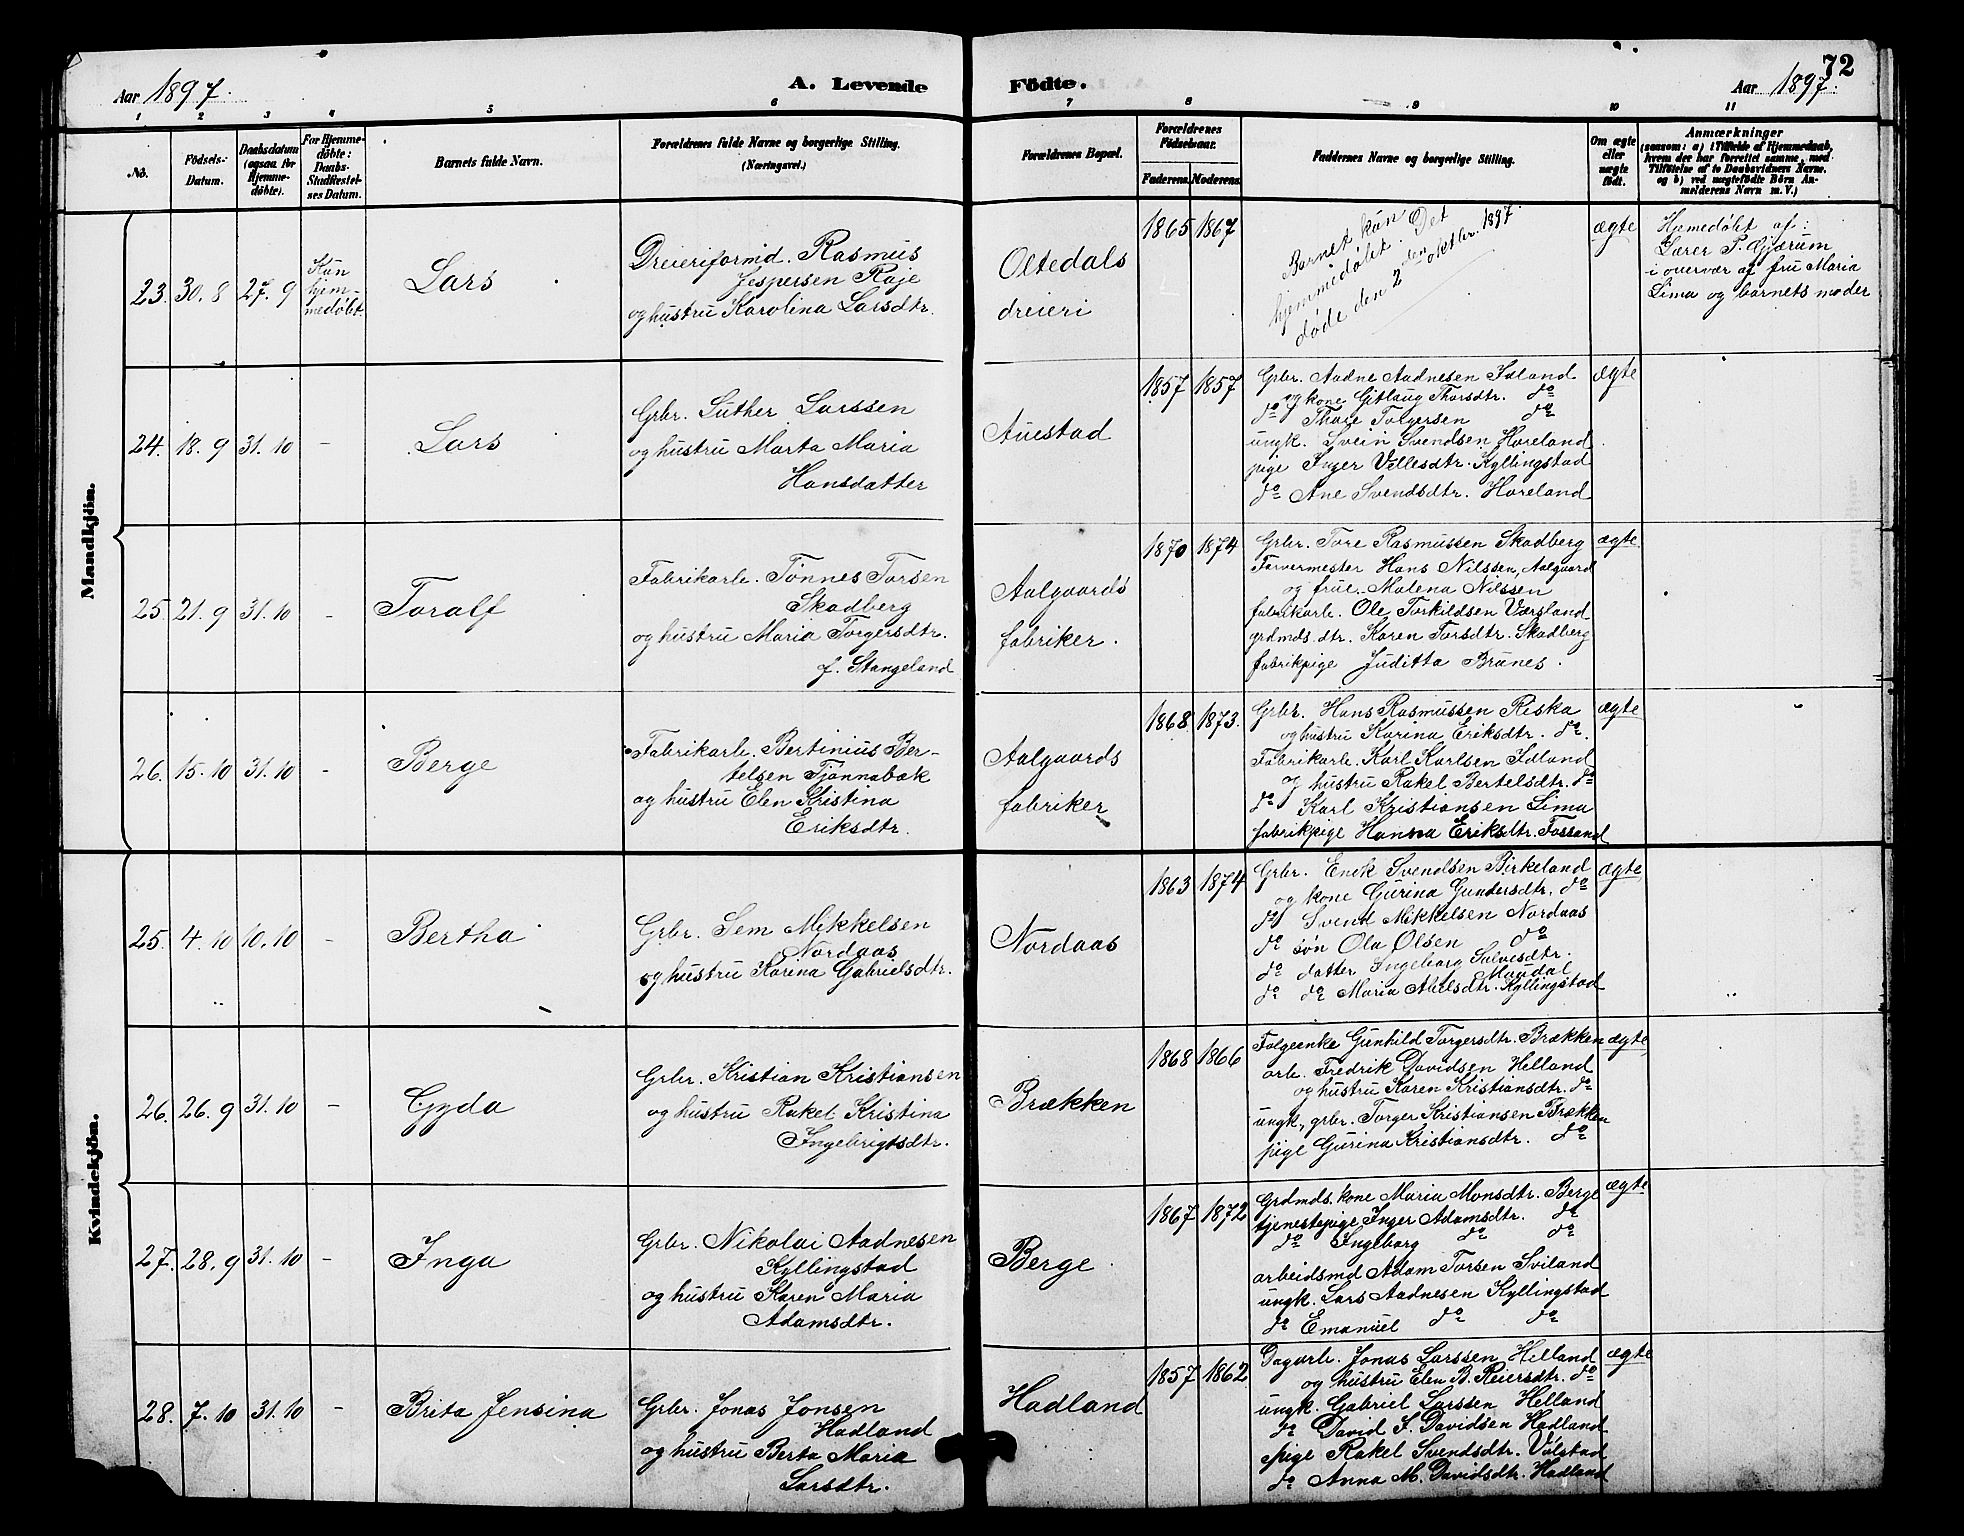 72
Aar 1897.
A. Levende Födte.
Aar 1897.
1 2 3 4 5 6 7 8 9 10 11
No.
Födsels-
Datum.
Daabsdatum
(ogsaa for
Hjemme-
döbte).
For Hjemme-
döbte:
Daabs-
Stadfæstel-
ses Datum.
Barnets fulde Navn.
Forældrenes fulde Navne og borgerlige Stilling.
(Næringsvei.)
Forældrenes Bopæl.
Forældrenes
Födselsaar.
Faderens. Moderens.
Faddernes Navne og borgerlige Stilling.
Om ægte
eller
uægte
födt.
Anmærkninger
(saasom: a) i Tilfælde af Hjemmedaab,
hvem der har forrettet samme, med
Tilföielse af to Daabsvidners Navne,
og b) ved uægtefödte Börn An-
melderens Navn m. V.)
Mandkjön.
23. 30. 8 27. 9
Kun
hjem-
medøbt.
Lars
Dreieriformd. Rasmus
Jespersen Raje
og hustru Karolina Larsdtr.
Oltedals
dreieri
1865 1867
Barnet kun
hjemmedøbt. Det
døde den 2den oktbr. 1897
ægte
Hjemedøbt af:
Lærer P. Gjærum
i overvær af fru Maria
Lima og barnets moder
24. 18. 9 31. 10 –
Lars
Grbr. Luther Larssen
og hustru Marta Maria
Hansdatter
Auestad
1857 1857
Grbr. Aadne Aadnesen Idland
og kone Gitlaug Thorsdtr. do
do Thore Tolgersen do
ungk. Svein Svendsen Hareland
pige Inger Vellesdtr. Kyllingstad
do Ane Svendsdtr. Hareland
ægte
25. 21. 9 31. 10 –
Toralf
Fabrikarb. Tønnes Torsen
Skadberg
og hustru Maria Torgersdtr.
f. Stangeland
Aalgaards
fabriker.
1870 1874
Grbr. Tore Rasmussen Skadberg
Farvermester Hans Nilssen, Aalgaard
og frue Malena Nilssen
fabrikarb. Ole Torkildsen Værsland
grdmds. dtr. Karen Torsdtr. Skadberg
fabrikpige Juditta Brunes.
ægte
26. 15. 10 31. 10 –
Berge
Fabrikarb. Bertinius Ber-
telsen Tjønnabæk
og hustru Elen Kristina
Eriksdtr.
Aalgaards
fabriker
1868 1873.
Grbr. Hans Rasmussen Riska
og hustru Karina Eriksdtr. do.
Fabrikarb. Karl Karlsen Idland
og hustru Rakel Bertelsdtr. do
do Karl Kristiansen Lima
fabrikpige Hanna Eriksdtr. Fossand
ægte
Kvindekjön.
25. 4. 10 10. 10 –
Bertha
Grbr. Sem Mikkelsen
Nordaas
og hustru Karina Gabrielsdtr.
Nordaas
1863 1874
Grbr. Enok Svendsen Birkeland
og kone Gurina Gundersdtr. do
do Svend Mikkelsen Nordaas
do søn Ola Olsen do
do datter Ingeborg Salvesdtr.
Maudal
do do Maria Abelsdtr. Kyllingstad
ægte
26. 26. 9 31. 10 –
Gyda
Grbr. Kristian Kristiansen
og hustru Rakel Kristina
Ingebrigtsdtr.
Brækken
1868 1866
Folgeenke Gunhild Torgersdtr. Brækken
arb. Fredrik Davidsen Helland
og hustru Karen Kristiansdtr. do
ungk., grbr. Torger Kristiansen Brækken
pige Gurina Kristiansdtr. do
ægte
27. 28. 9 31. 10 –
Inga
Grbr. Nikolai Aadnesen
Kyllingstad
og hustru Karen Maria
Adamsdtr.
Berge
1867 1872
Grdmds. kone Maria Monsdtr. Berge
tjenestepige Inger Adamsdtr. do
do Ingeborg do do
arbeidsmd Adam Torsen Sviland
ungk. Lars Aadnesen Kyllingstad
do Emanuel do do
ægte
28. 7. 10 31. 10 –
Brita Jensina
Grbr. Jonas Jonsen
Hadland
og hustru Berta Maria
Larsdtr.
Hadland
1857 1862
Dagarb. Jonas Larssen Helland
og hustru Elen B. Reiersdtr. do
ungk. Gabriel Larssen Helland
do David S. Davidsen Hadland
pige Rakel Svendsdtr. Vølstad
do Anna M. Davidsdtr. Hadland
ægte